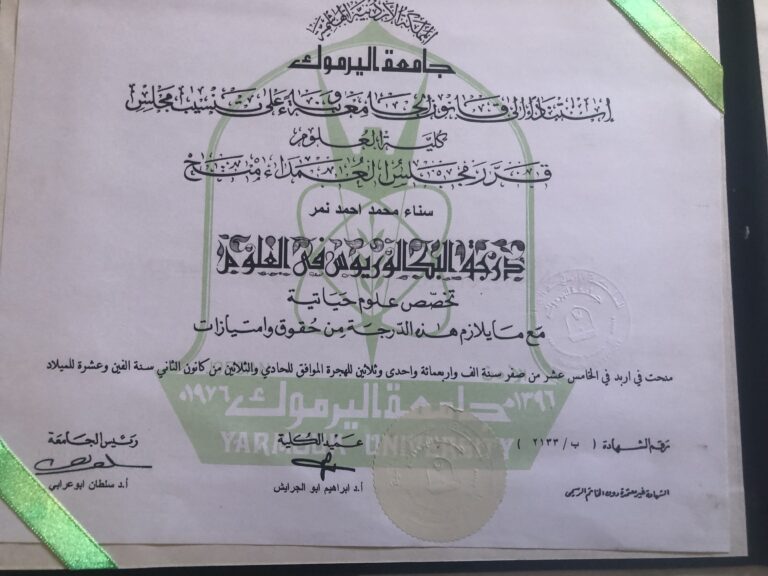 المملكة الأردنية الهاشمية
جامعة اليرموك
إستناداً إلى قانون الجامعة وبناءً على تنسيب مجلس
كلية العلوم
قرر مجلس العمداء منح
سناء محمد احمد نمر
درجة البكالوريوس في العلوم
تخصص علوم حياتية
مع ما يلازم هذه الدرجة من حقوق وامتيازات
منحت في اربد في الخامس عشر من صفر سنة الف واربعمائة واحدى وثلاثين للهجرة الموافق للحادي والثلاثين من كانون الثاني سنة الفين وعشرة للميلاد
١٣٩٦ جامعة اليرموك ١٩٧٦
YARMOUK UNIVERSITY
رقم الشهادة ( ب / ٢١٣٣ )
عميد الكلية
رئيس الجامعة
أ.د ابراهيم ابو الجرايش
أ.د سلطان ابو عرابي
الشهادة غير معتمدة دون الخاتم الرسمي